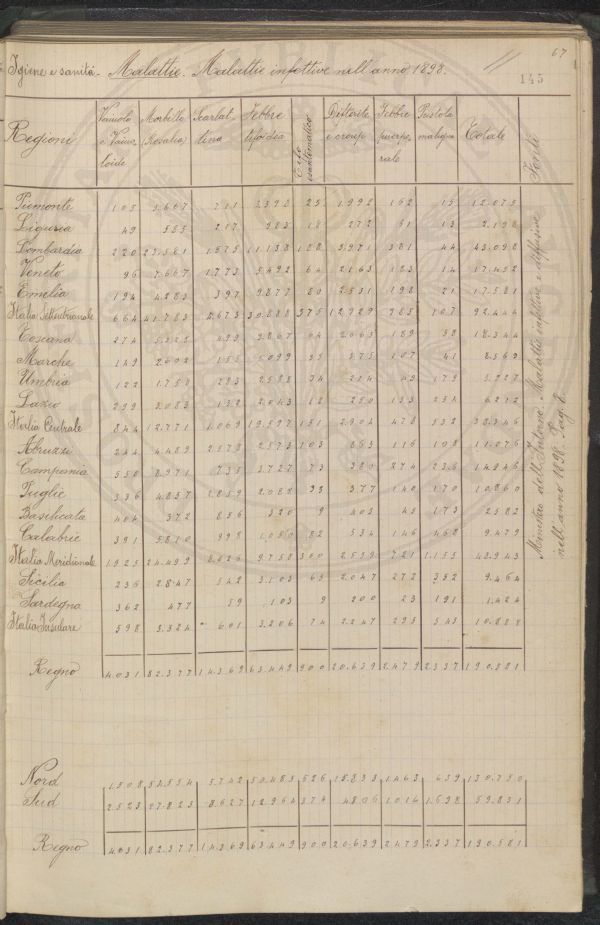 67
Igiene e sanità. Malattie. Malattie infettive nell'anno 1898.
145
Regioni Vaiuolo e Vaiuoloide Morbillo Rosalia Scarlattina Febbre tifoidea Tifo esantematico Difterite e croup Febbre puerperale Pustola maligna Totale
Piemonte 105 3.607 711 2.398 25 1.992 162 15 12.075
Liguria 49 585 217 983 18 272 61 13 2.198
Lombardia 220 23.581 1.575 11.138 188 5.971 381 44 43.098
Veneto 96 7.667 1.773 5.492 64 2.163 183 14 17.452
Emilia 194 4.283 397 9.877 80 2.531 198 21 17.581
Italia Settentrionale 664 41.783 4.673 30.888 375 12.729 985 107 92.444
Toscana 274 499 9.867 64 2.065 189 58 18.344
Marche 149 2.602 155 5.099 35 375 107 41 8.563
Umbria 122 1.758 293 2.588 34 214 49 179 5.227
Lazio 299 3.083 132 2.043 18 250 133 254 6.212
Italia Centrale 844 12.771 1.069 19.597 151 2.904 478 532 38.346
Abruzzi 244 4.489 2.578 2.573 103 865 116 108 11.076
Campania 550 8.971 735 3.727 73 380 274 236 14.946
Puglie 336 4.857 2.859 2.088 33 377 140 170 10.860
Basilicata 404 372 856 320 9 403 45 173 2.582
Calabrie 391 5.810 998 1.050 82 534 146 468 9.479
Italia Meridionale 1.925 24.499 8.026 9.758 300 2.559 721 1.155 48.943
Sicilia 236 2.847 542 3.103 65 2.047 272 352 9.464
Sardegna 362 477 59 103 9 200 23 191 1.424
Italia Insulare 598 3.324 601 3.206 74 2.247 295 543 10.888
Regno 4.031 82.377 14.369 63.449 900 20.639 2.479 2.337 190.581
Nord 1.508 54.554 5.742 50.485 526 15.833 1.463 639 130.750
Sud 2.523 27.823 8.627 12.964 374 4.806 1.016 1.698 59.831
Regno 4.031 82.377 14.369 63.449 900 20.639 2.479 2.337 190.581
Fonti
Ministro dell'Interno. Malattie infettive e diffusive
nell'anno 1898. Pag. 8.